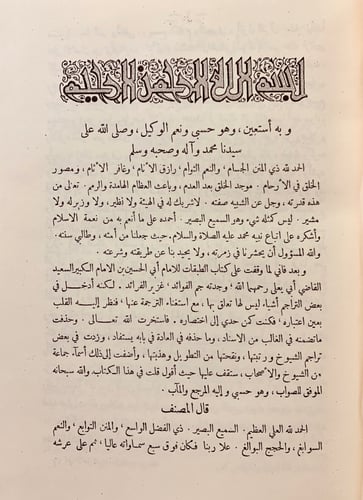 بسم الله الرحمن الرحيم
و به أستعين، وهو حسبى ونعم الوكيل، وصلى الله على
سيدنا محمد وآله وصحبه وسلم
الحمد لله ذي المنن الجسام، والنعم التوام، رازق الأنام، وغافر الآثام، ومصور
الخلق فى الأرحام. موجد الخلق بعد العدم، وباعث العظام الهامدة والرمم. تعالى من
هذه قدرته، وجل عن الشبيه صفته. لاشريك له في الهيئة ولا نظير، ولا وزير له ولا
مشير. ليس كمثله شىء وهو السميع البصير. أحمده على ما أنعم به من نعمة الاسلام
وأشكره على اتباع نبيه محمد عليه الصلاة والسلام، حيث جعلنا من أمته، وطالبى سنته.
والله المسؤول أن يحشرنا فى زمرته، ولا يحيد بنا عن طريقته وشرعته.
و بعد فانى لما وقفت على كتاب الطبقات للامام أبي الحسين بن الامام الكبير السعيد
القاضي أبي يعلى رحمهما الله، وجدته جم الفوائد، غزير الفرائد. لكنه أدخل في
بعض التراجم أشياء ليس لها تعلق بها، مع استغناء الترجمة عنها، فنظر إليه القلب
بعين اعتباره، فكنت كمن حدي إلى اختصاره. فاستخرت الله تعالى. وحذفت
ماتضمنه في الغالب من الاسناد، وما حذفه في العادة في بابه يستفاد، وزدت في بعض
تراجم الشيوخ ورتبتها، ونقحتها من التطويل وهذبتها، وأضفت إلى ذلك أسماء جماعة
من الشيوخ والأصحاب، ستقف عليها حيث أقول قلت فى هذا الكتاب. والله سبحانه
الموفق للصواب، وهو حسبى و إليه المرجع والمآب.
قال المصنف
الحمد لله العلي العظيم. السميع البصير. ذي الفضل الواسع، والمنن التوابع، والنعم
السوابغ، والحجج البوالغ. علا ربنا فكان فوق سبع سماواته عاليا، ثم على عرشه